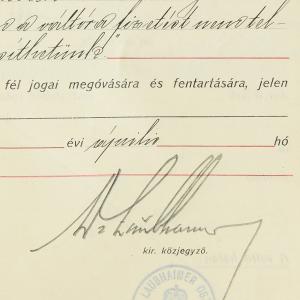 a váltóra fizetést nem tel-
jesíthetünk"
fél jogai megóvására és fentartására, jelen
évi április hó
Dr Laubhaimer
kir. közjegyző.
LAUBHAIMER OS